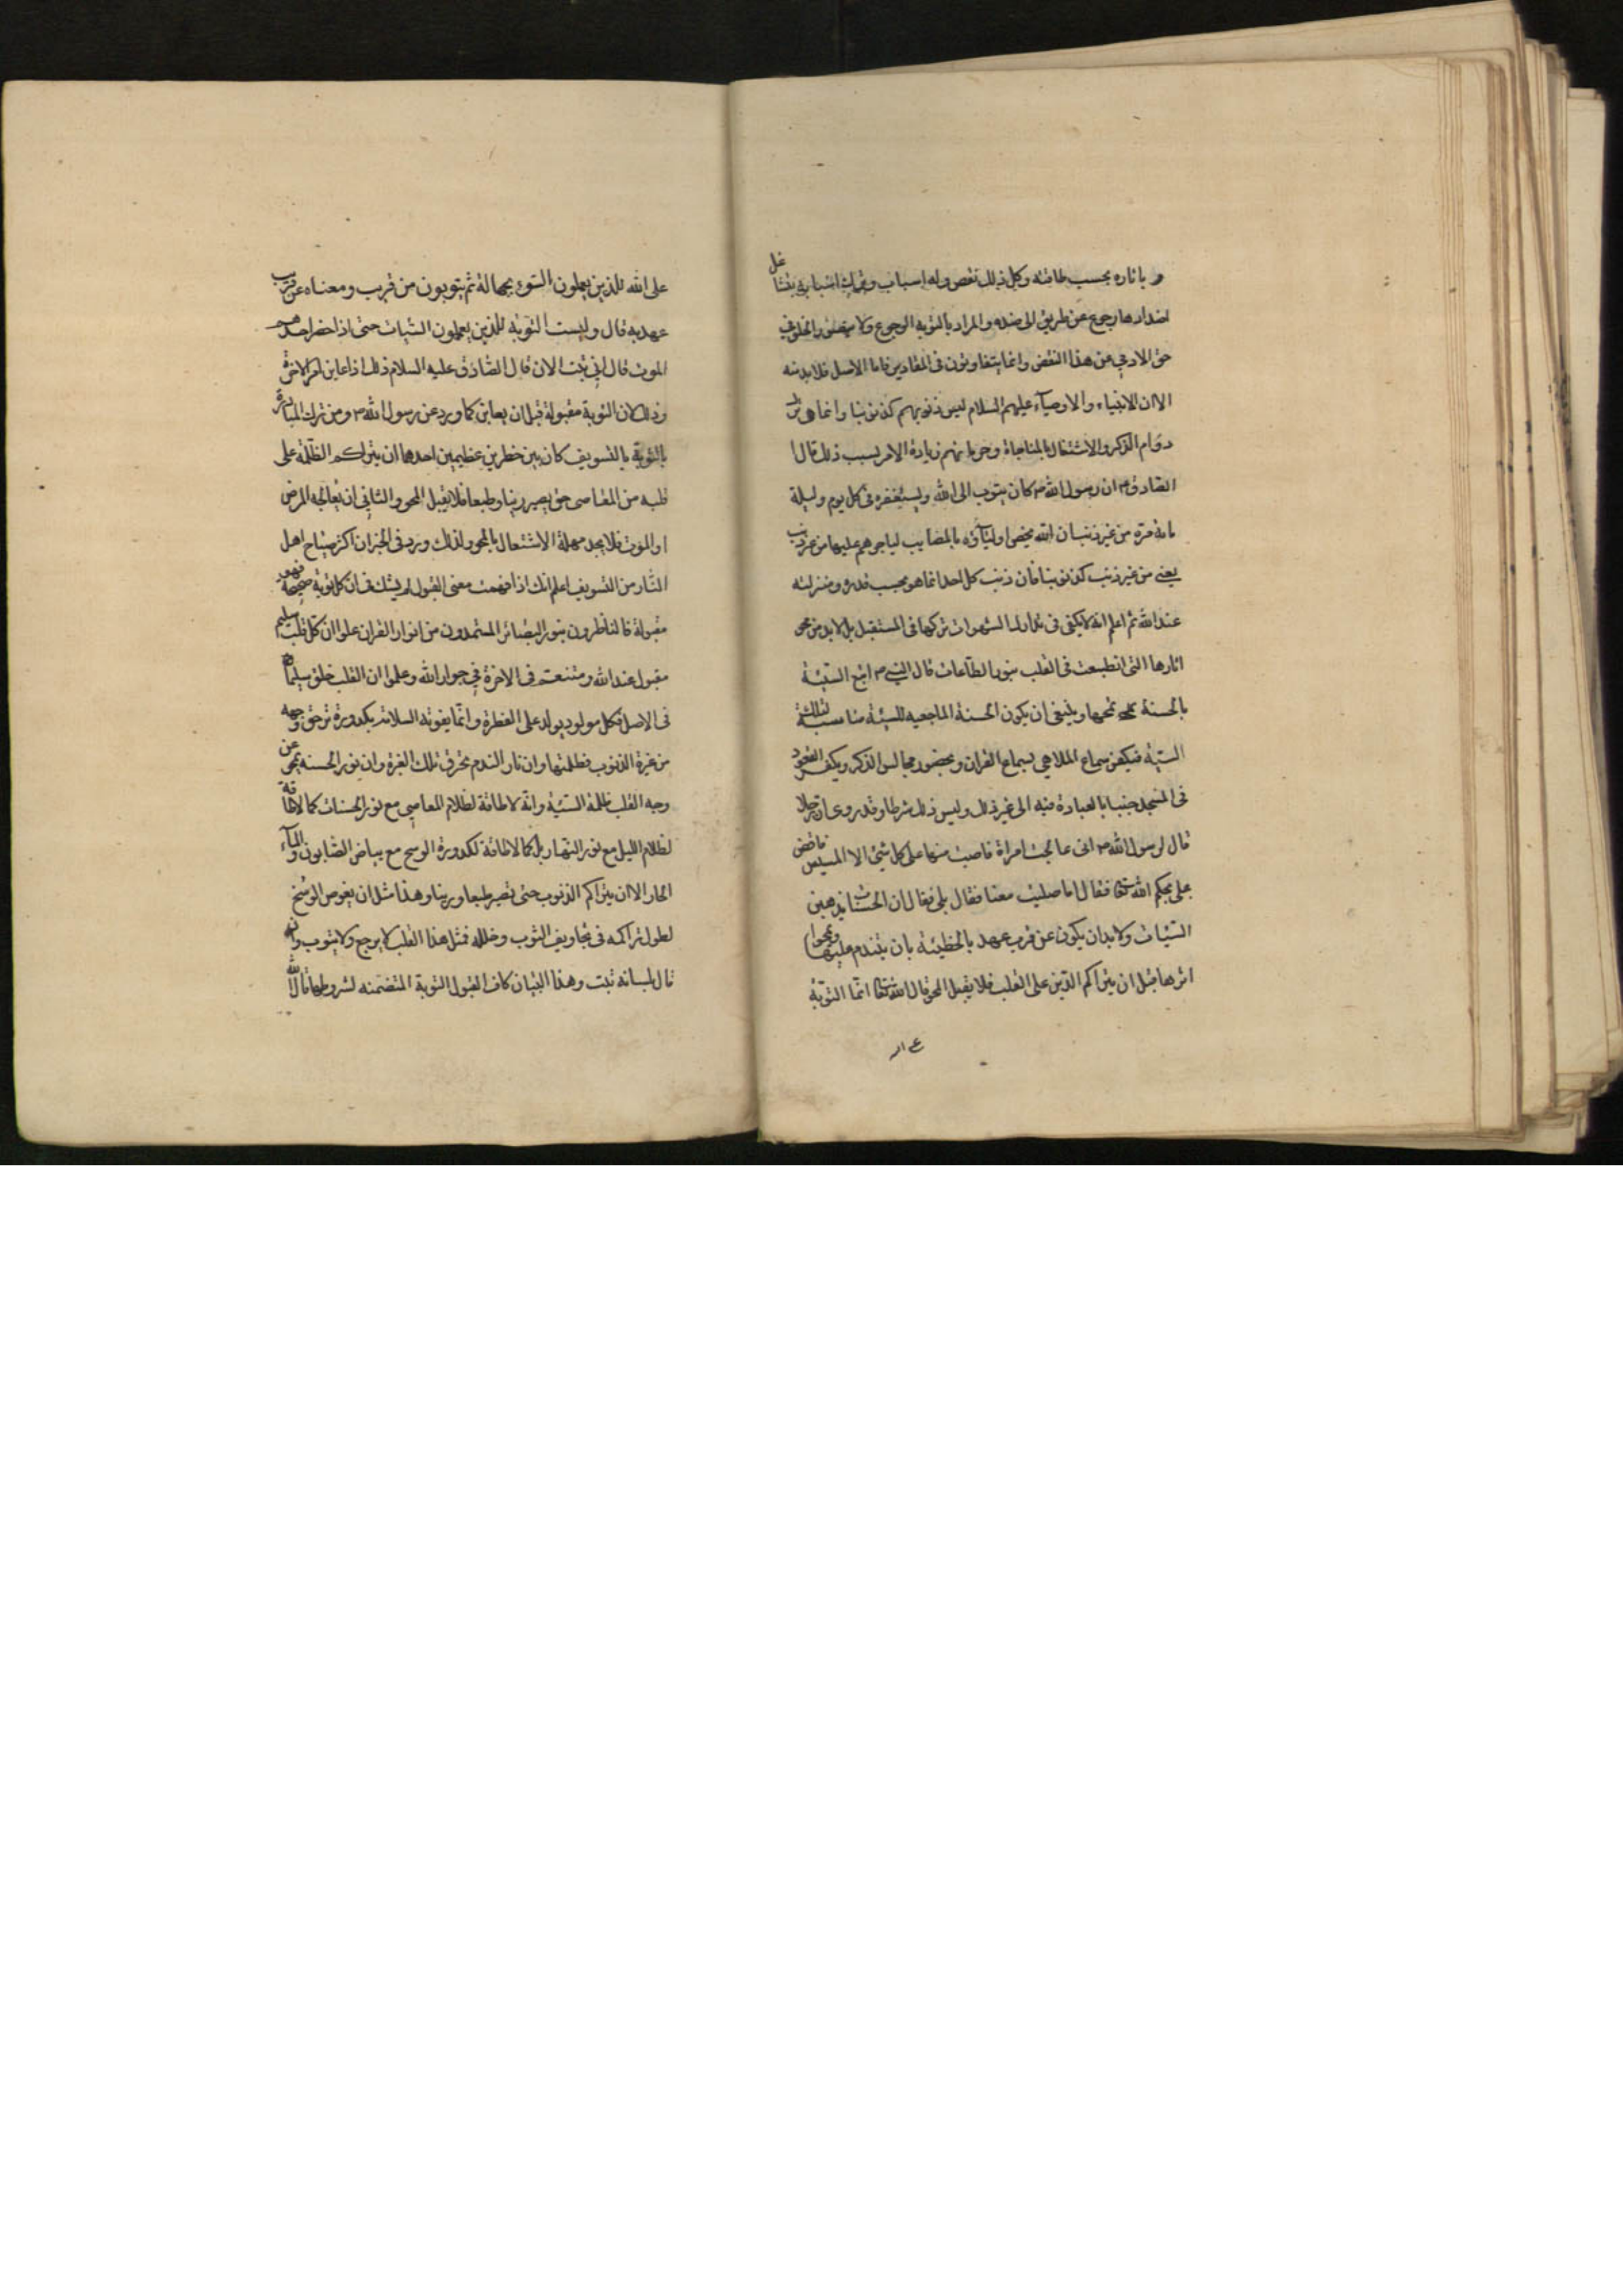 و باثاره بحسب طاقته وكل ذلك نقص وله اسباب وترك اسبابه بتشاغل
اضدادها رجوع عن طريق الى ضده والمراد بالتوبة الرجوع ولا يتصور الخلو في
حق الادمي من هذا النقص وانما يتفاوتون في المقادير فاما الاصل فلا بد منه
الا ان الانبياء والاوصيآء عليهم السلام ليس ذنوبهم كذنوبنا وانما هي ترك
دوام الذكر والاشتغال بالمناجاة وحرمانهم زيادة الاجر بسبب ذلك قال
الصادق ع ان رسول الله ص كان يتوب الى الله ويستغفره في كل يوم وليلة
مائة مرة من غير ذنب ان الله يخص اوليآؤه بالمصايب لياجرهم عليها من غير ذنب
يعني من غير ذنب كذنوبنا فان ذنب كل احد انما هو بحسب قدره ومنزلته
عند الله ثم اعلم انه لا يكفي في تدارك الشهوات تركها في المستقبل بل لا بد من محو
اثارها التي انطبعت في القلب بنور الطاعات قال النبي ص اتبع السيئة
بالحسنة تمحها وينبغي ان يكون الحسنة الماحية للسيئة مناسبة لتلك
السيئة فيكفر سماع الملاهي بسماع القران وبحضور مجالس الذكر ويكفر القعود
في المسجد جنبا بالعبادة فيه الى غير ذلك وليس ذلك شرطا وقد روى ان رجلا
قال لرسول الله ص اني عالجت امراة فاصبت منها على كل شئ الا المسيس فاقض
علي بحكم الله تعا فقال اما صليت معنا فقال بلى فقال ان الحسنات يذهبن
السيئات ولا بد ان يكون عن قرب عهد بالخطيئة بان يتندم عليها ويمحوا
اثرها قبل ان يتراكم الرين على القلب فلا يقبل المحو قال الله تعا انما التوبة
على الله للذين يعملون السوء بجهالة ثم يتوبون من قريب ومعناه عن قرب
عهد به قال وليست التوبة للذين يعملون السيئات حتى اذا حضر احدهم
الموت قال اني تبت الان قال الصادق عليه السلام ذلك اذا عاين امر الاخرة
وذلك لان التوبة مقبولة قبل ان يعاين كما ورد عن رسول الله ص ومن ترك المبادرة
بالتوبة بالتسويف كان بين خطرين عظيمين احدهما ان يتراكم الظلمة على
قلبه من المعاصي حتى يصير رينا وطبعا فلا يقبل المحو والثاني ان يعالجه المرض
او الموت فلا يجد مهلة الاشتغال بالمحو ولذلك ورد في الخبر ان اكثر صياح اهل
النار من التسويف اعلم انك اذا فهمت معنى القبول لم يشك في ان كل توبة صحيحة فهو
مقبولة فالناظرون بنور البصائر المستمدون من انوار القران علموا ان كل قلب سليم
مقبول عند الله ومتنعم في الاخرة في جوار الله وعلموا ان القلب خلق سليما
في الاصل فكل مولود يولد على الفطرة وانما يفوته السلامة بكدورة ترهق وجهه
من غبرة الذنوب وظلمتها وان نار الندم تحرق تلك الغبرة وان نور الحسنة يمحو عن
وجه القلب ظلمة السيئة وانه لا طاقة لظلام المعاصي مع نور الحسنات كما لا طاقة
لظلام الليل مع نور النهار بل كما لا طاقة لكدورة الوسخ مع بياض الصابون والمآء
الحار الا ان يتراكم الذنوب حتى تصير طبعا ورينا وهذا مثل ان يغوص الوسخ
لطول تراكمه في تجاويف الثوب وخلله فمثل هذا القلب لا يرجع ولا يتوب وان
قال بلسانه تبت وهذا البيان كاف لقبول التوبة المتضمنه لشروطها قال الله